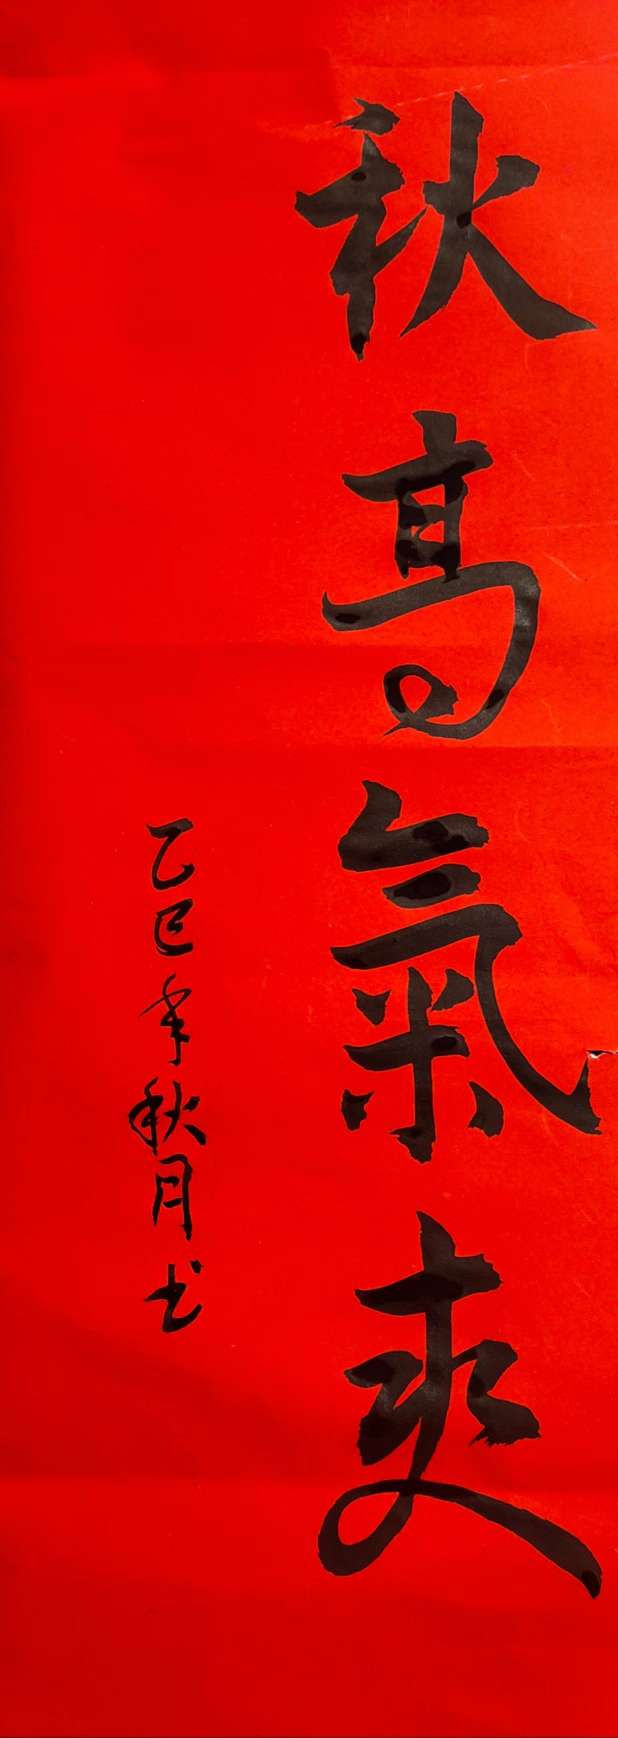 秋高氣爽
乙巳年秋月书